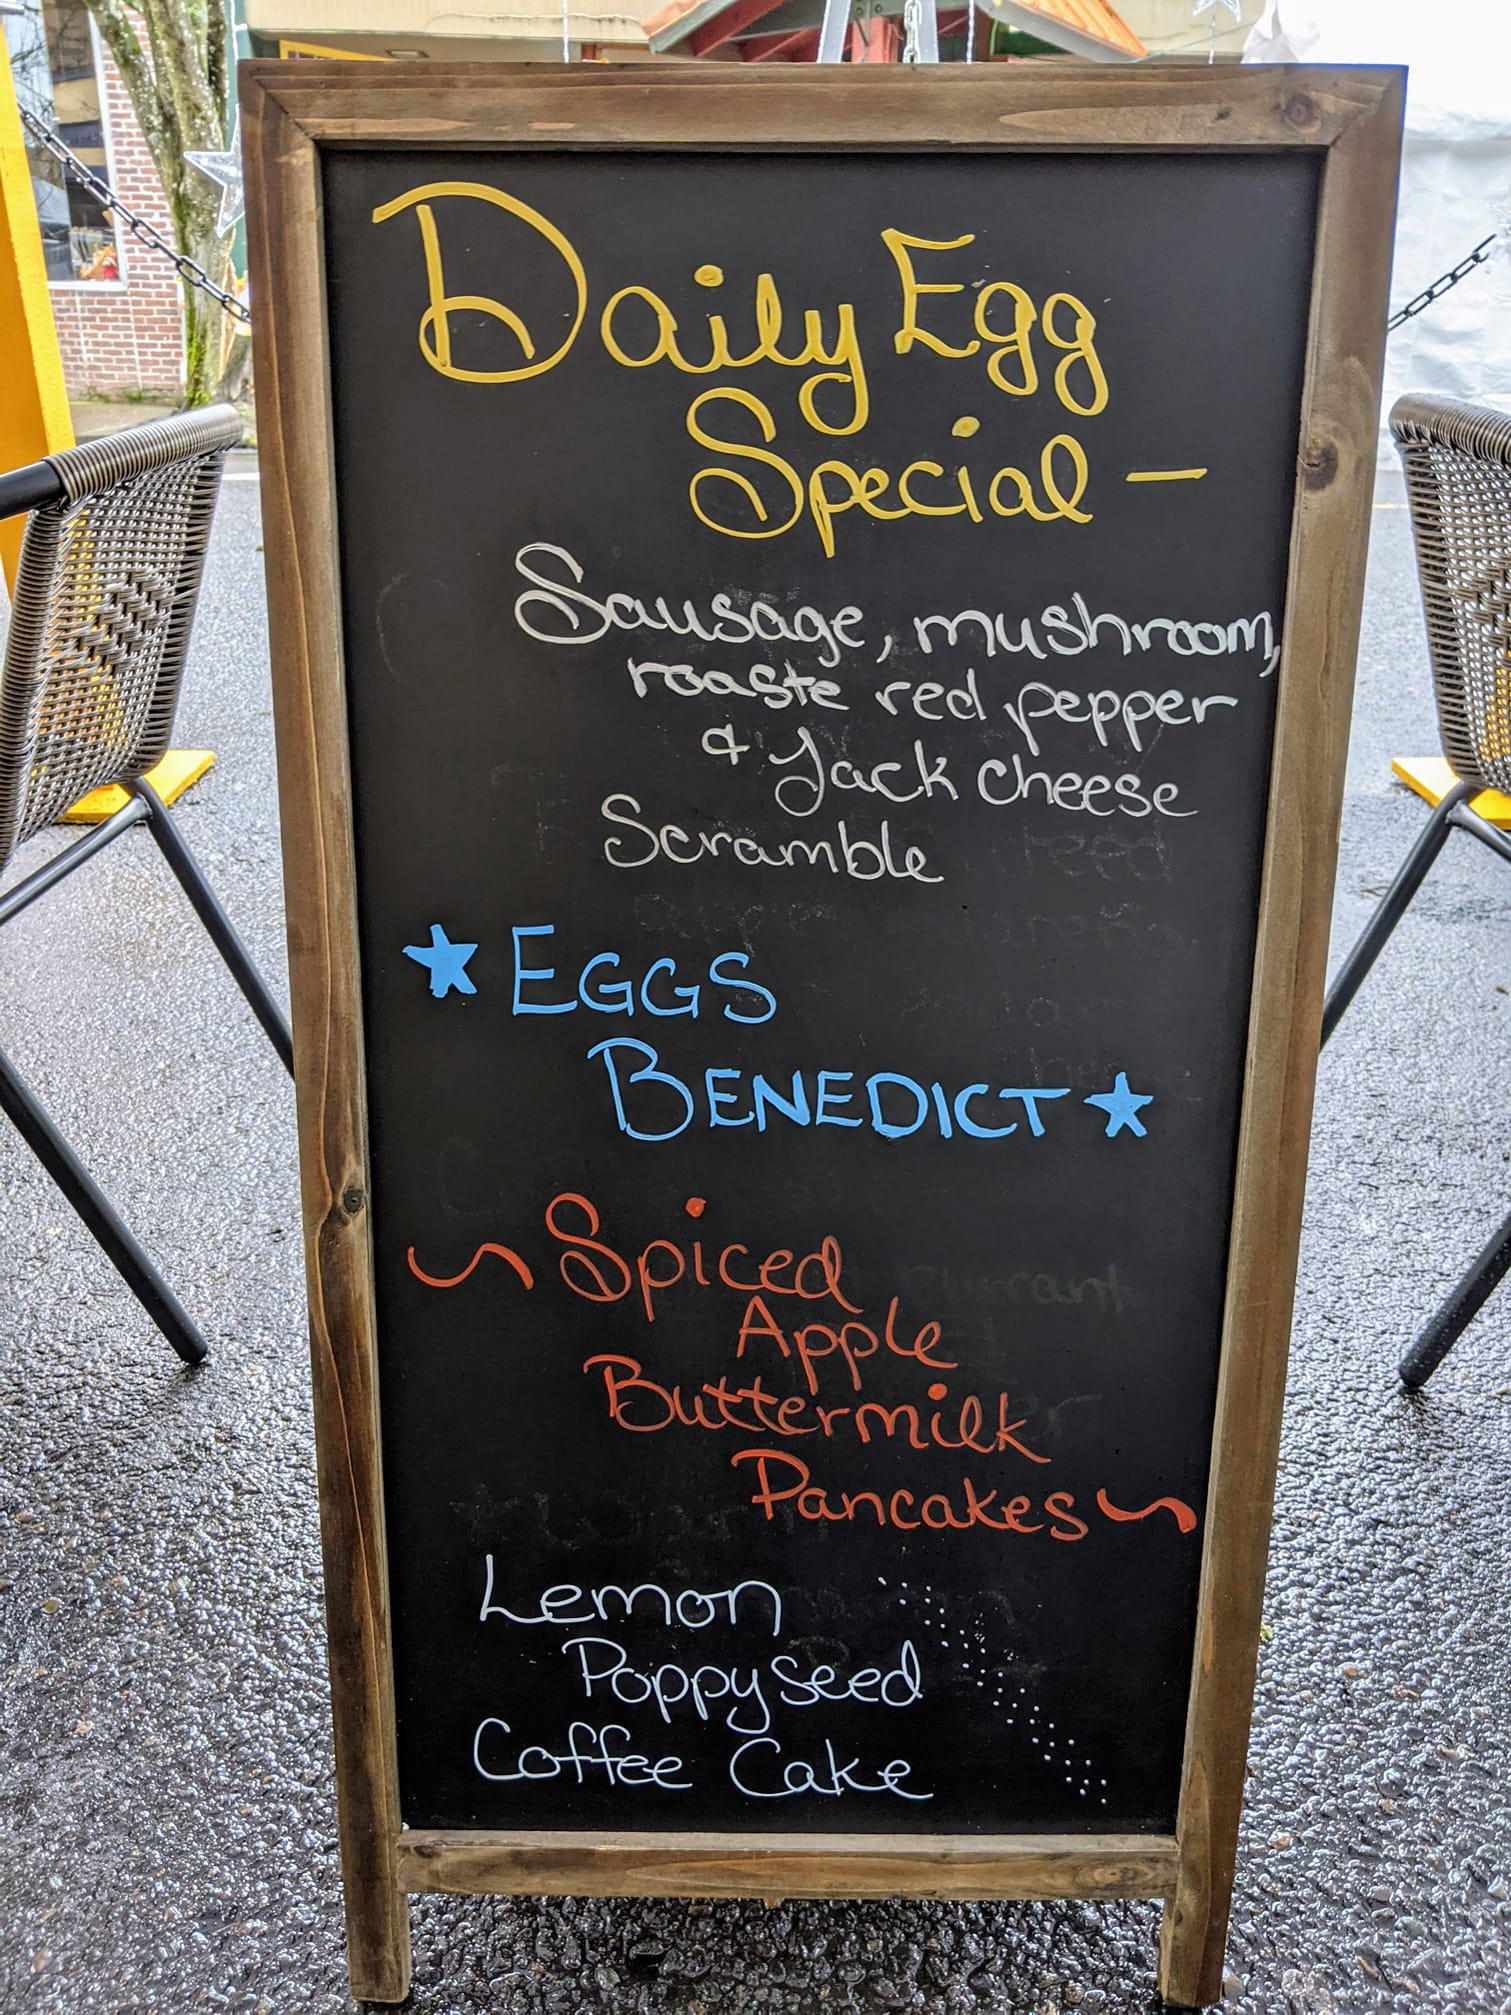 Daily Egg
Special —
Sausage, mushroom,
roaste red pepper
& Jack cheese
Scramble
EGGS
BENEDICT
Spiced
Apple
Buttermilk
Pancakes
Lemon
Poppyseed
Coffee Cake